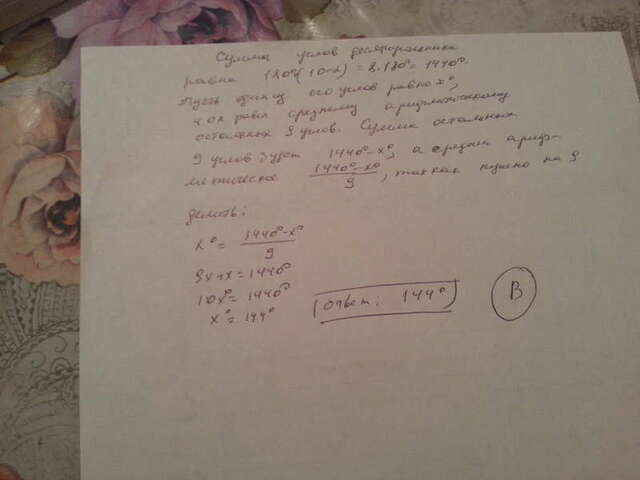 Сумма углов десятиугольника
равна 180°(10-2) = 8·180° = 1440°.
Пусть один из его углов равно x°,
и он равен среднему арифметическому
остальных 9 углов. Сумма остальных
9 углов будет 1440°-x°, а средние ариф-
метическое (1440°-x°)/9, так как нужно на 9
делить:
x° = (1440°-x°)/9
9x+x = 1440°
10x° = 1440°
x° = 144°
Ответ: 144°
В